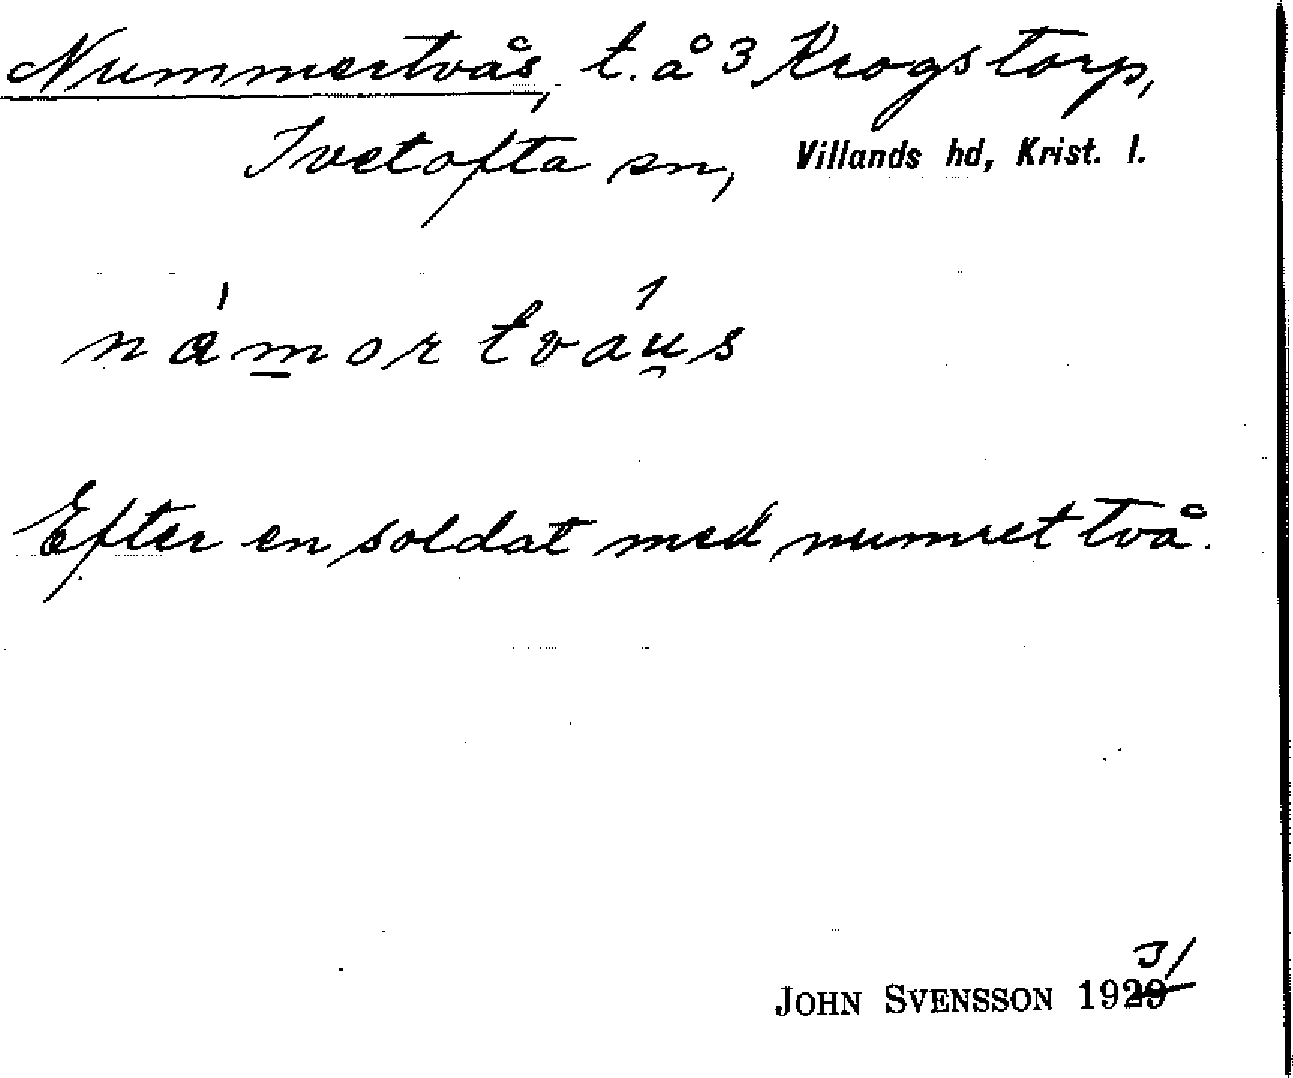 Nummertvås, t. å 3 Krogstorp,
Ivetofta sn, Villands hd, Krist. l.
námor tváu̯s
Efter en soldat med numret två.
31
JOHN SVENSSON 1929